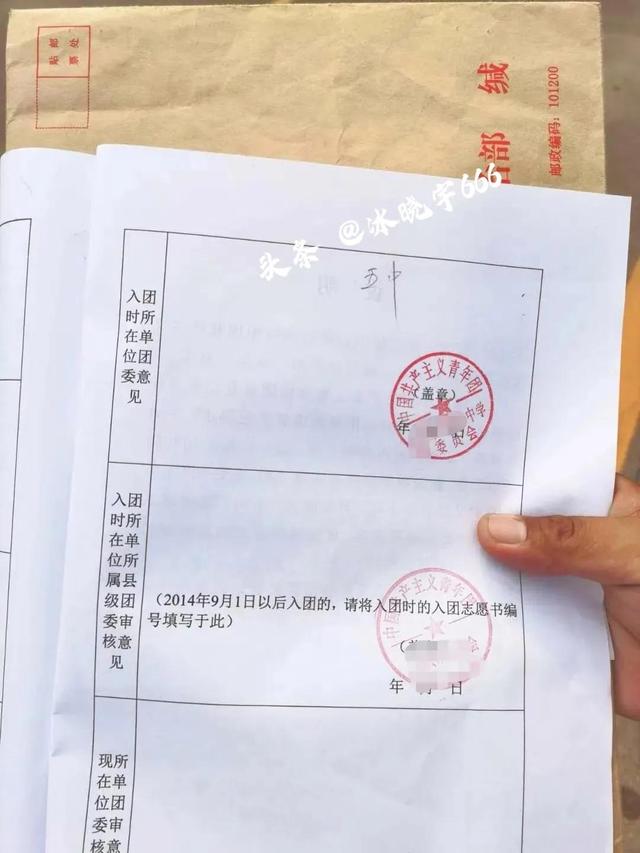 贴邮
票处
缄
部
邮政编码：101200
头条 @冰晓宇666
五中
入团
时所
在单
位团
委意
见
中国共产主义青年团
（盖章）
中学
年
委员会
入团
时所
在单
位所
属县
级团
委审
核意
见
中国共产主义青年团
（2014年9月1日以后入团的，请将入团时的入团志愿书编
号填写于此）
会
年 月 日
现所
在单
位团
委审
核意